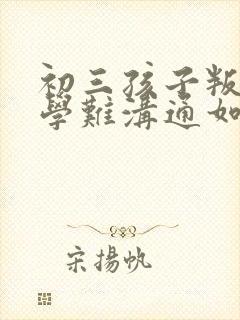 初三孩子叛
學難溝通如
宋揚帆